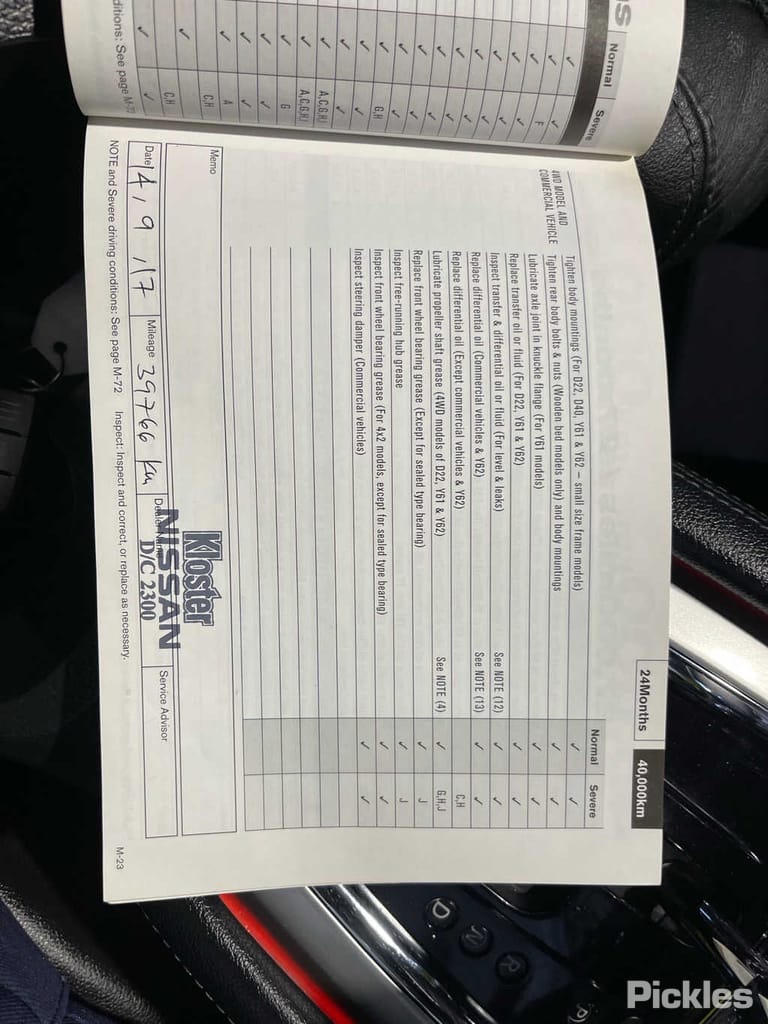 24Months 40,000km
Normal Severe
4WD MODEL AND
COMMERCIAL VEHICLE
Tighten body mountings (For D22, D40, Y61 & Y62 – small size frame models) ✓ ✓
Tighten rear body bolts & nuts (Wooden bed models only) and body mountings ✓ ✓
Lubricate axle joint in knuckle flange (For Y61 models) ✓ ✓
Replace transfer oil or fluid (For D22, Y61 & Y62) ✓ ✓
Inspect transfer & differential oil or fluid (For level & leaks) See NOTE (12) ✓ ✓
Replace differential oil (Commercial vehicles & Y62) See NOTE (13) ✓ ✓
Replace differential oil (Except commercial vehicles & Y62) C,H
Lubricate propeller shaft grease (4WD models of D22, Y61 & Y62) See NOTE (4) ✓ G,H,J
Replace front wheel bearing grease (Except for sealed type bearing) ✓ J
Inspect free-running hub grease ✓ J
Inspect front wheel bearing grease (For 4x2 models, except for sealed type bearing) ✓ ✓
Inspect steering damper (Commercial vehicles) ✓ ✓
Memo
Kloster
NISSAN
D/C 2300
Date 14, 9, 17 Mileage 39766 km Service Advisor
NOTE and Severe driving conditions: See page M-72 Inspect: Inspect and correct, or replace as necessary.
M-23
Normal Severe
F
G,H
A,C,G,H,I
A,C,G,H,I
G
A
C,H
C,H
ditions: See page
D
N
R
Pickles